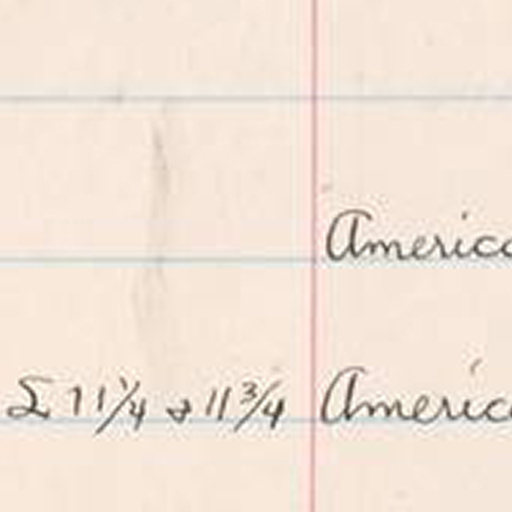 America
Σ 11¼ & 11¾ America